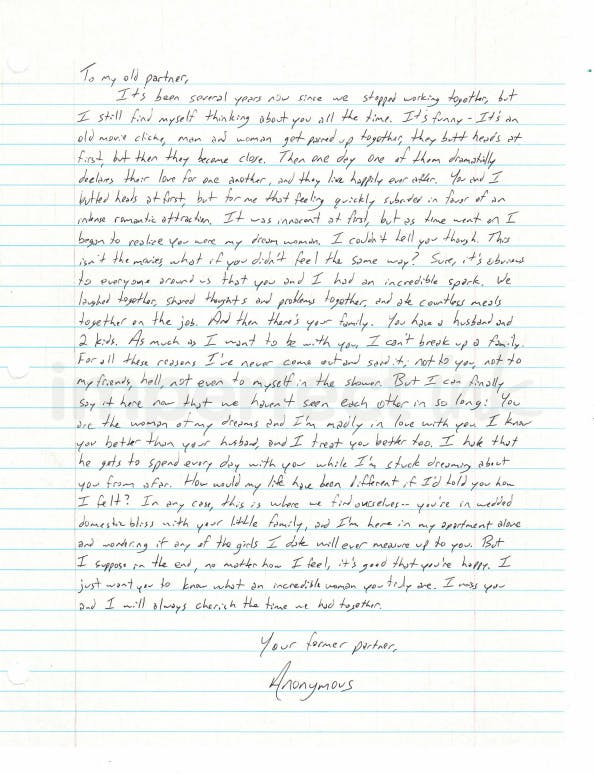 To my old partner,
It's been several years now since we stopped working together, but
I still find myself thinking about you all the time. It's funny - It's an
old movie cliche, man and woman get paired up together, they butt heads at
first, but then they become close. Then one day one of them dramatically
declares their love for one another, and they live happily ever after. You and I
butted heads at first, but for me that feeling quickly subsided in favor of an
intense romantic attraction. It was innocent at first, but as time went on I
began to realize you were my dream woman. I couldn't tell you though. This
isn't the movies what if you didn't feel the same way? Sure, it's obvious
to everyone around us that you and I had an incredible spark. We
laughed together, shared thoughts and problems together, and ate countless meals
together on the job. And then there's your family. You have a husband and
2 kids. As much as I want to be with you, I can't break up a family.
For all these reasons I've never come out and said it; not to you, not to
my friends, hell, not even to myself in the shower. But I can finally
say it here now that we haven't seen each other in so long: You
are the woman of my dreams and I'm madly in love with you. I know
you better than your husband, and I treat you better too. I hate that
he gets to spend every day with you while I'm stuck dreaming about
you from afar. How would my life have been different if I'd told you how
I felt? In any case, this is where we find ourselves-- you're in wedded
domestic bliss with your little family, and I'm here in my apartment alone
and wondering if any of the girls I date will ever measure up to you. But
I suppose in the end, no matter how I feel, it's good that you're happy. I
just want you to know what an incredible woman you truly are. I miss you
and I will always cherish the time we had together.
Your former partner,
Anonymous